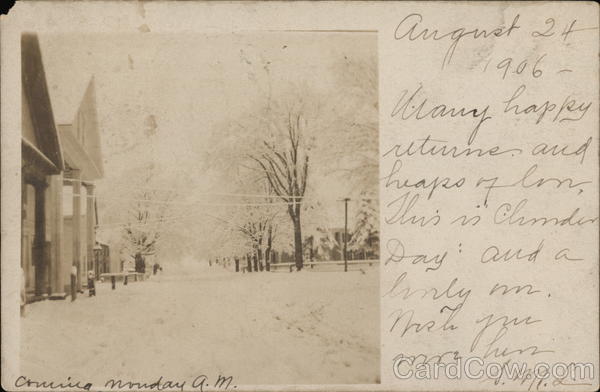 August 24
1906 -
Many happy
returns and
heaps of love.
This is
Day: and a
lovely one.
Wish you
were here
Coming Monday A.M.
CardCow.com